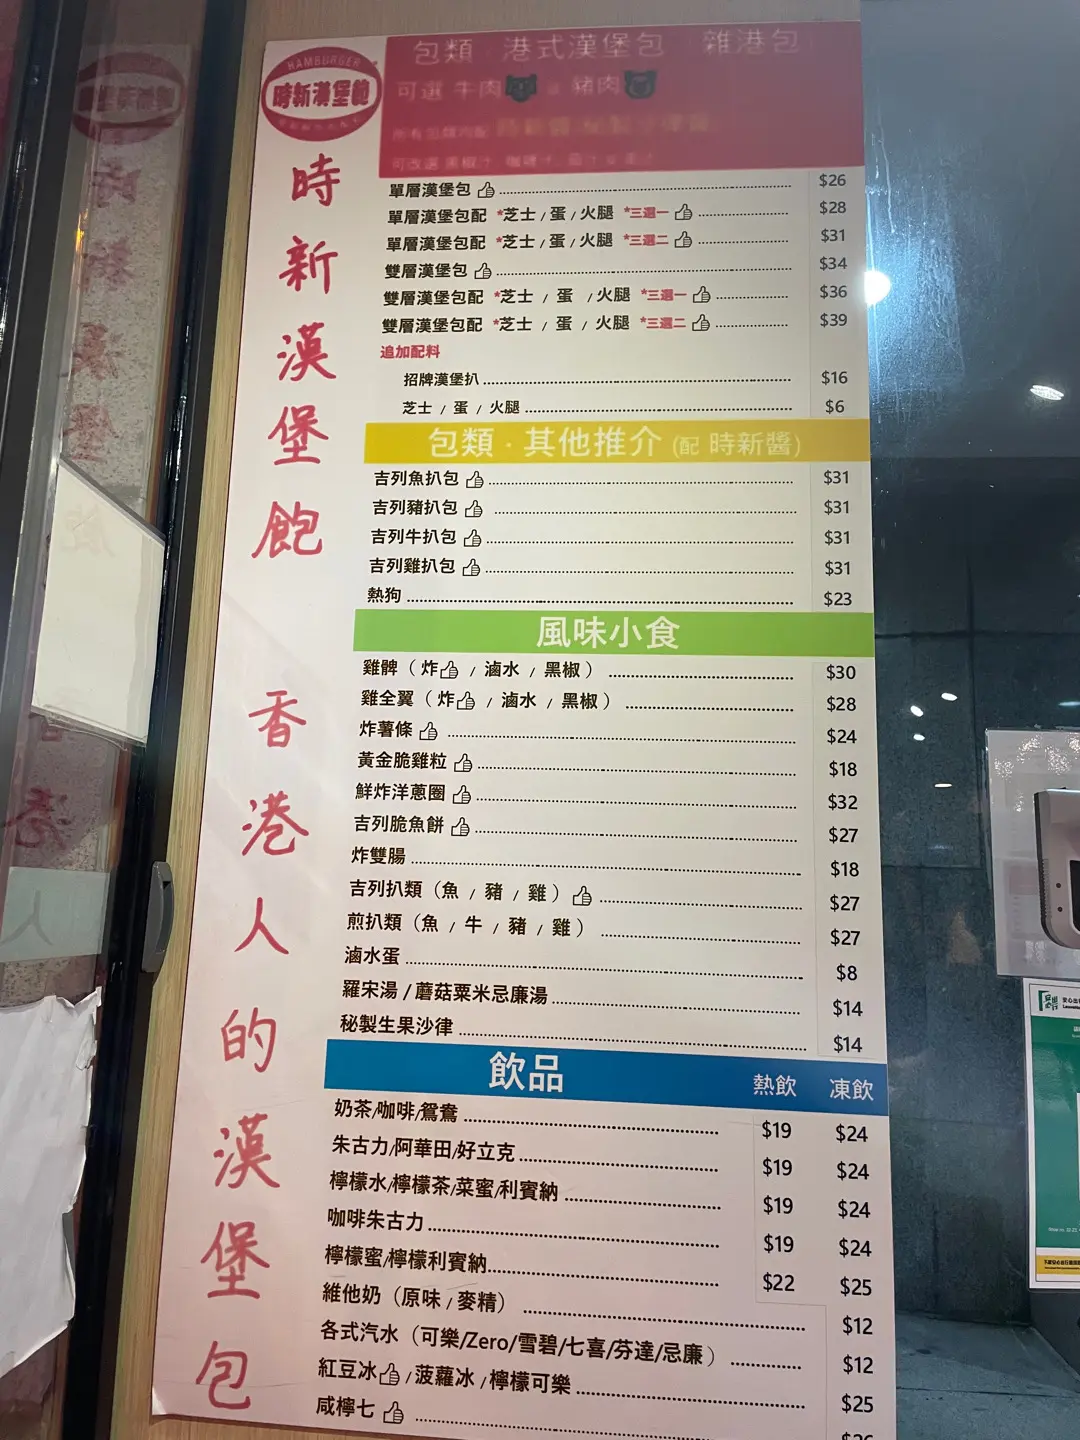 HAMBURGER
時新漢堡飽
時新漢堡飽 香港人的漢堡包
包類 · 港式漢堡包 雜港包
可選 牛肉 豬肉
單層漢堡包 $26
單層漢堡包配 *芝士 / 蛋 / 火腿 *三選一 $28
單層漢堡包配 *芝士 / 蛋 / 火腿 *三選二 $31
雙層漢堡包 $34
雙層漢堡包配 *芝士 / 蛋 / 火腿 *三選一 $36
雙層漢堡包配 *芝士 / 蛋 / 火腿 *三選二 $39
追加配料
招牌漢堡扒 $16
芝士 / 蛋 / 火腿 $6
包類 · 其他推介 (配 時新醬)
吉列魚扒包 $31
吉列豬扒包 $31
吉列牛扒包 $31
吉列雞扒包 $31
熱狗 $23
風味小食
雞髀 ( 炸 / 滷水 / 黑椒 ) $30
雞全翼 ( 炸 / 滷水 / 黑椒 ) $28
炸薯條 $24
黃金脆雞粒 $18
鮮炸洋蔥圈 $32
吉列脆魚餅 $27
炸雙腸 $18
吉列扒類 (魚 / 豬 / 雞 ) $27
煎扒類 (魚 / 牛 / 豬 / 雞 ) $27
滷水蛋 $8
羅宋湯 / 蘑菇粟米忌廉湯 $14
秘製生果沙律 $14
飲品 熱飲 凍飲
奶茶/咖啡/鴛鴦 $19 $24
朱古力/阿華田/好立克 $19 $24
檸檬水/檸檬茶/菜蜜/利賓納 $19 $24
咖啡朱古力 $19 $24
檸檬蜜/檸檬利賓納 $22 $25
維他奶 (原味 / 麥精) $12
各式汽水 (可樂/Zero/雪碧/七喜/芬達/忌廉 ) $12
紅豆冰 / 菠蘿冰 / 檸檬可樂 $25
咸檸七